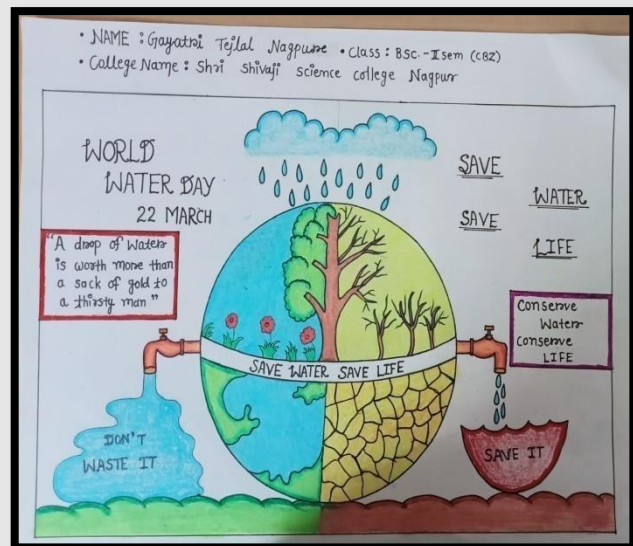 • NAME : Gayatri Tejlal Nagpure • Class : BSC.-II sem (CBZ)
• College Name : Shri Shivaji Science college Nagpur
WORLD
WATER DAY
22 MARCH
"A drop of Water
is worth more than
a sack of gold to
a thirsty man"
SAVE
WATER
SAVE
LIFE
Conserve
Water
Conserve
LIFE
SAVE WATER SAVE LIFE
DON'T
WASTE IT
SAVE IT